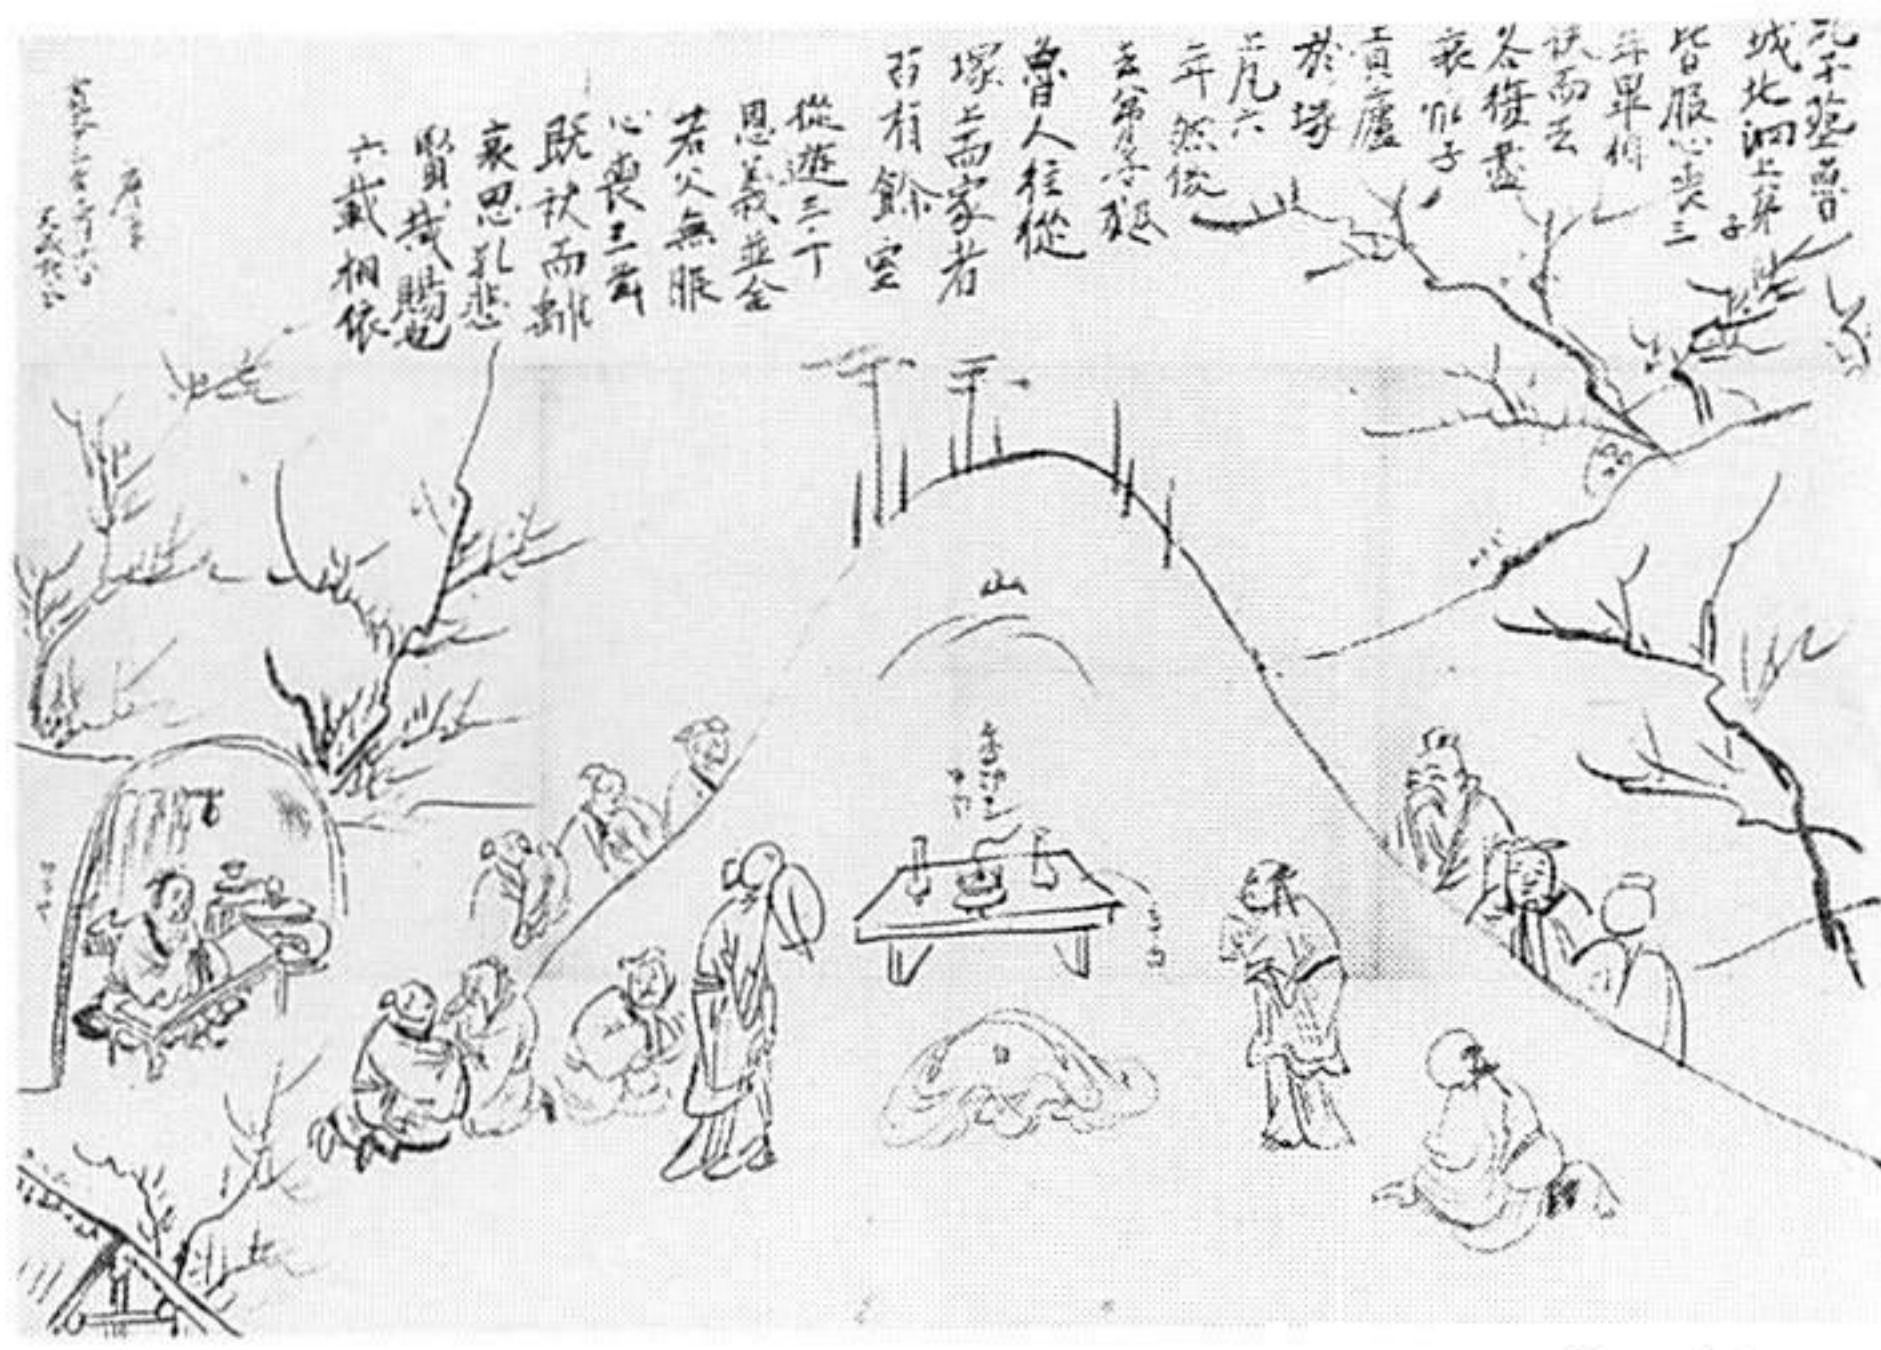 孔子葬魯
城北泗上弟子
皆服心喪三
年畢相
訣而去
各復盡
哀唯子
貢廬
於塚
上凡六
年然後
去弟子及
魯人往從
塚上而家者
百有餘室
從遊三千
恩義並全
若父無服
心喪三年
既訣而離
哀思孔悲
賢哉賜也
六載相依
山